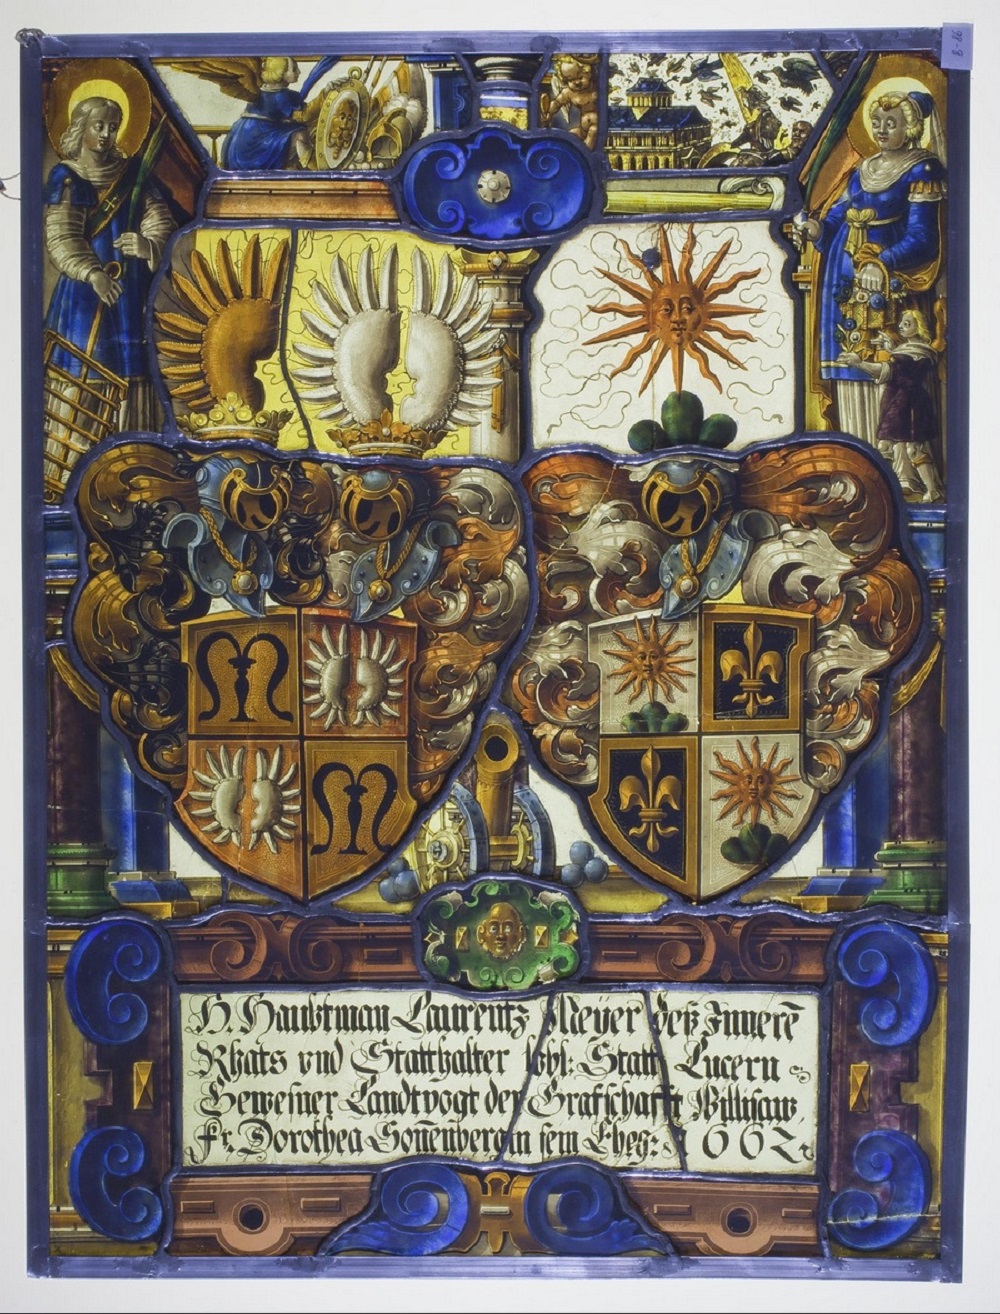 H. Haubtman Laurentz Meÿer deß Jnnerē
Rhats vnd Statthalter lobl: Statt Lucern
Geweſner Landtvogt der Graffſchafft Willisauw
fr. Dorothea Soñenbergin ſein Eheg: 1662